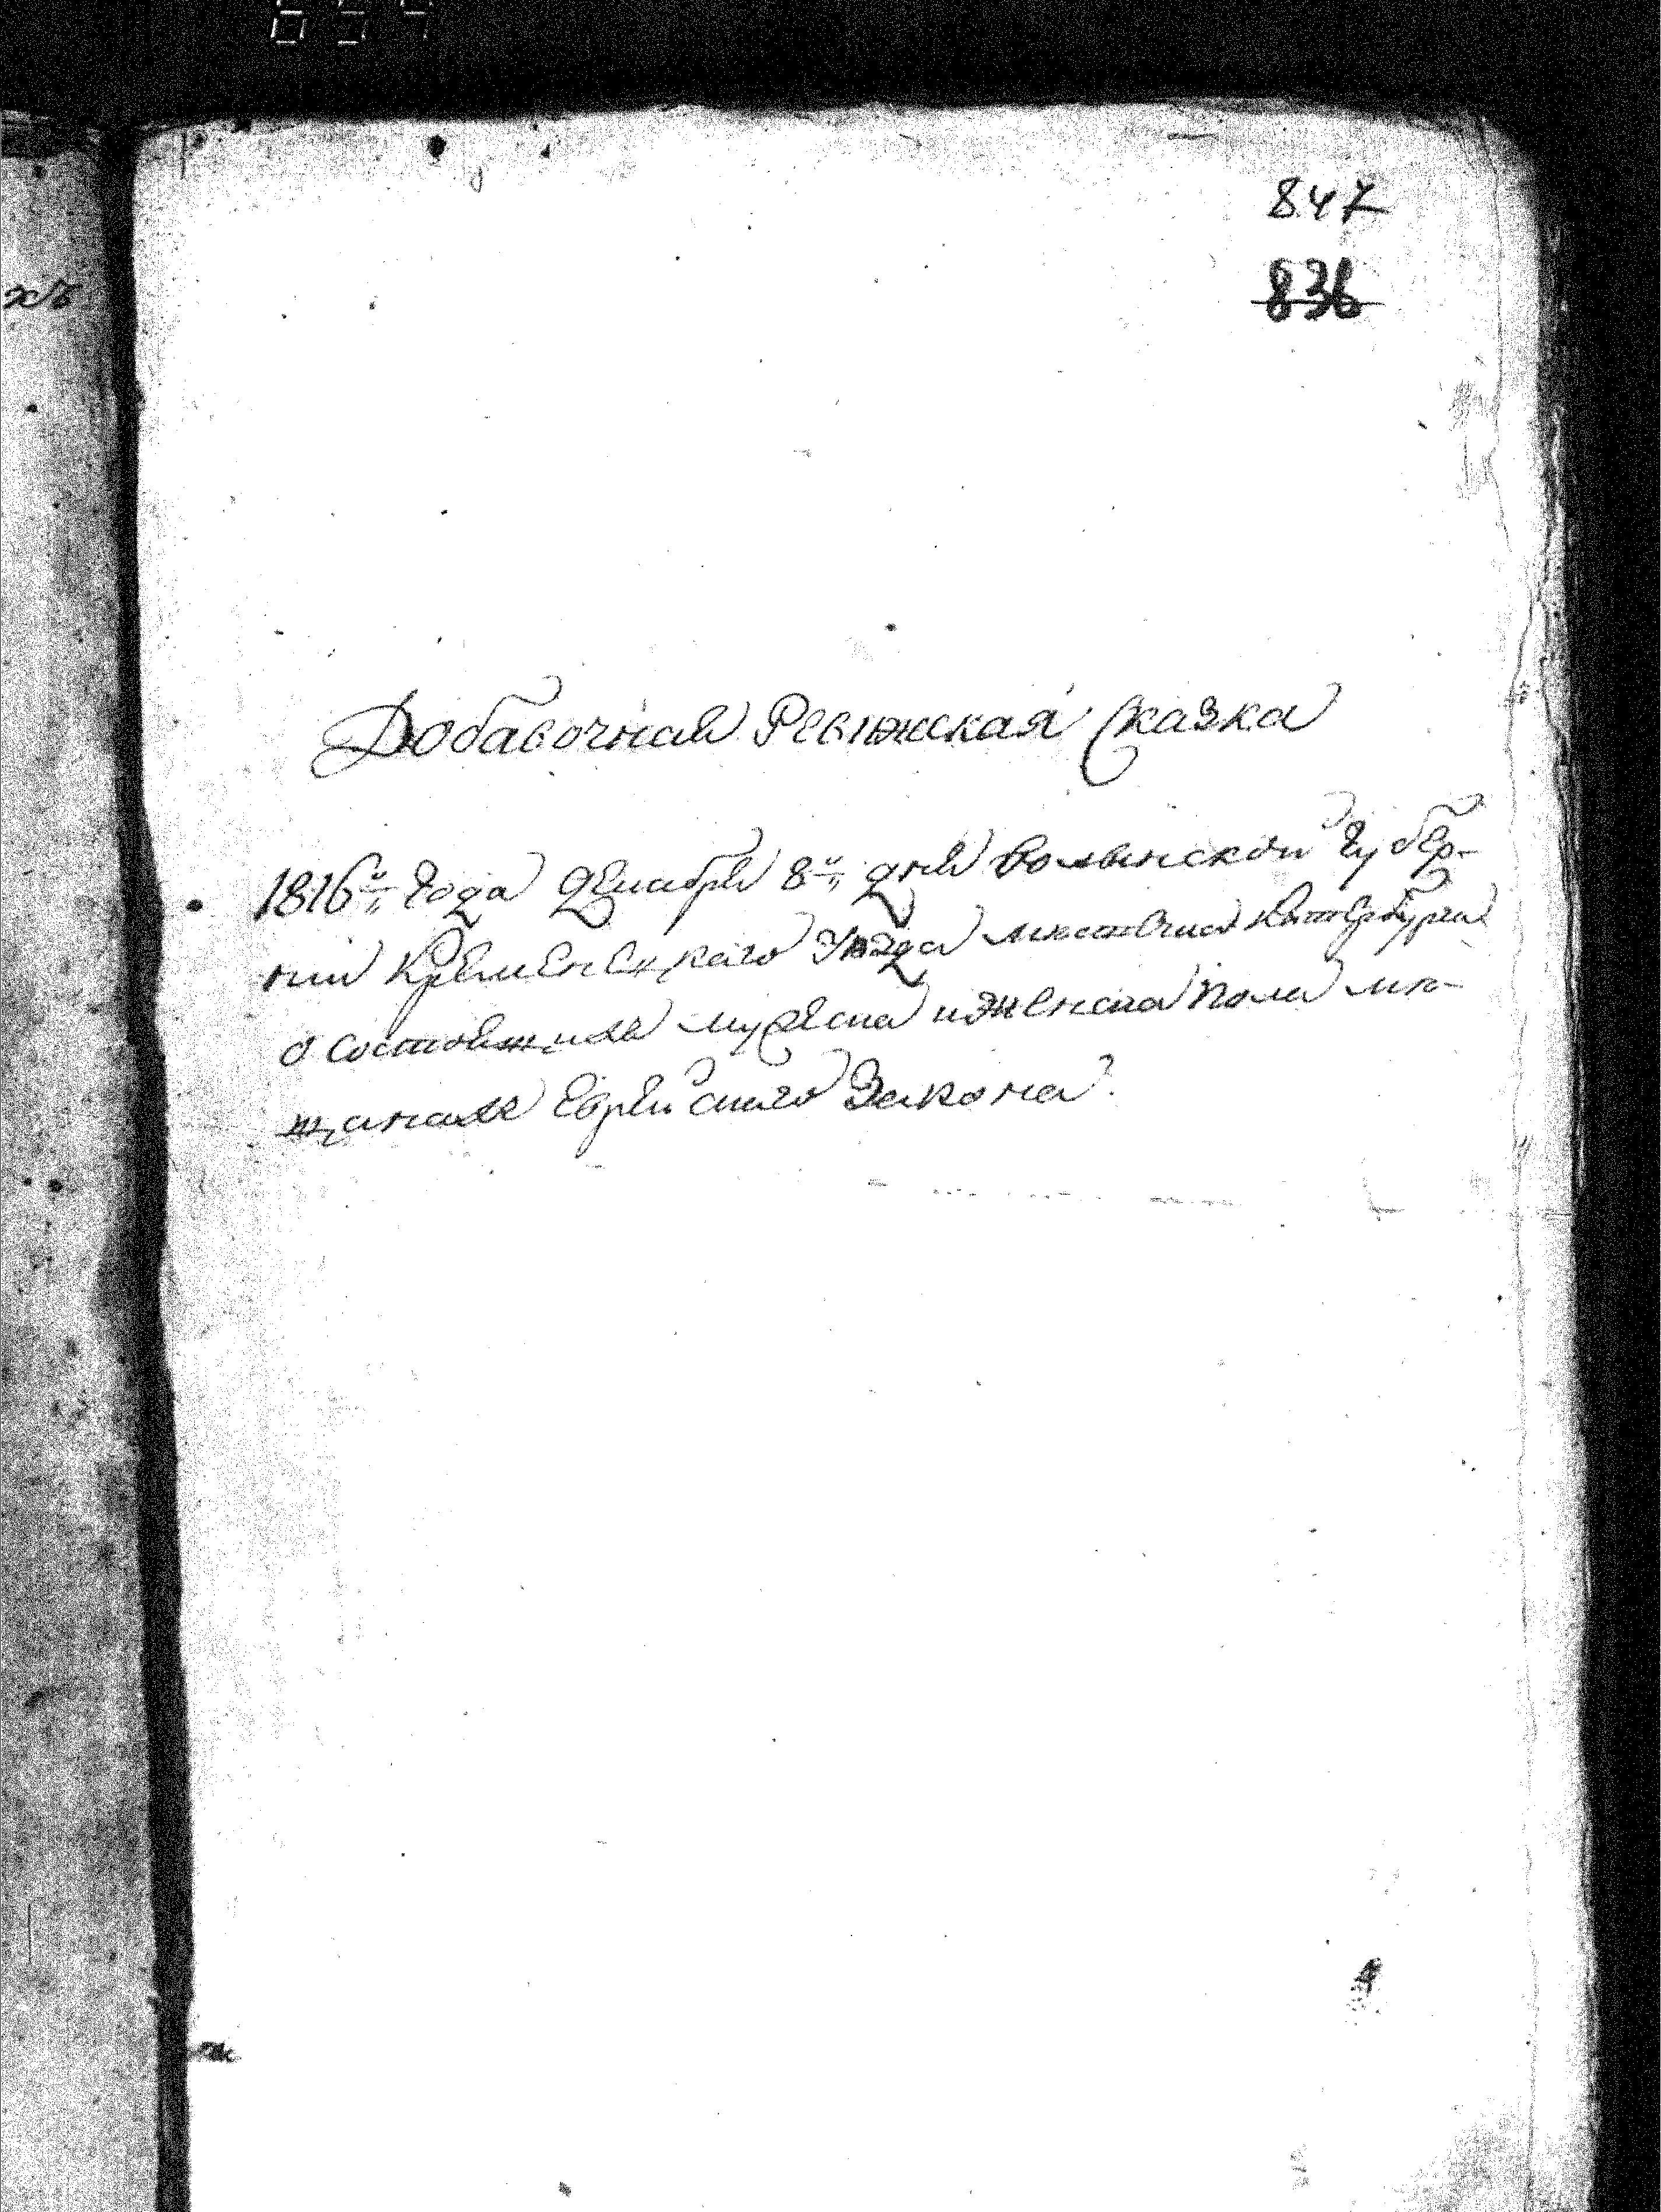 847
836
хъ
Добавочная Ревизская Сказка
1816го Года Декабря 8го дня Волынской Губер-
нии Кременецкаго Уезда местечка Катербурга
о Состоящих мужеска и женска пола ме-
щанах Еврейскаго Закона.